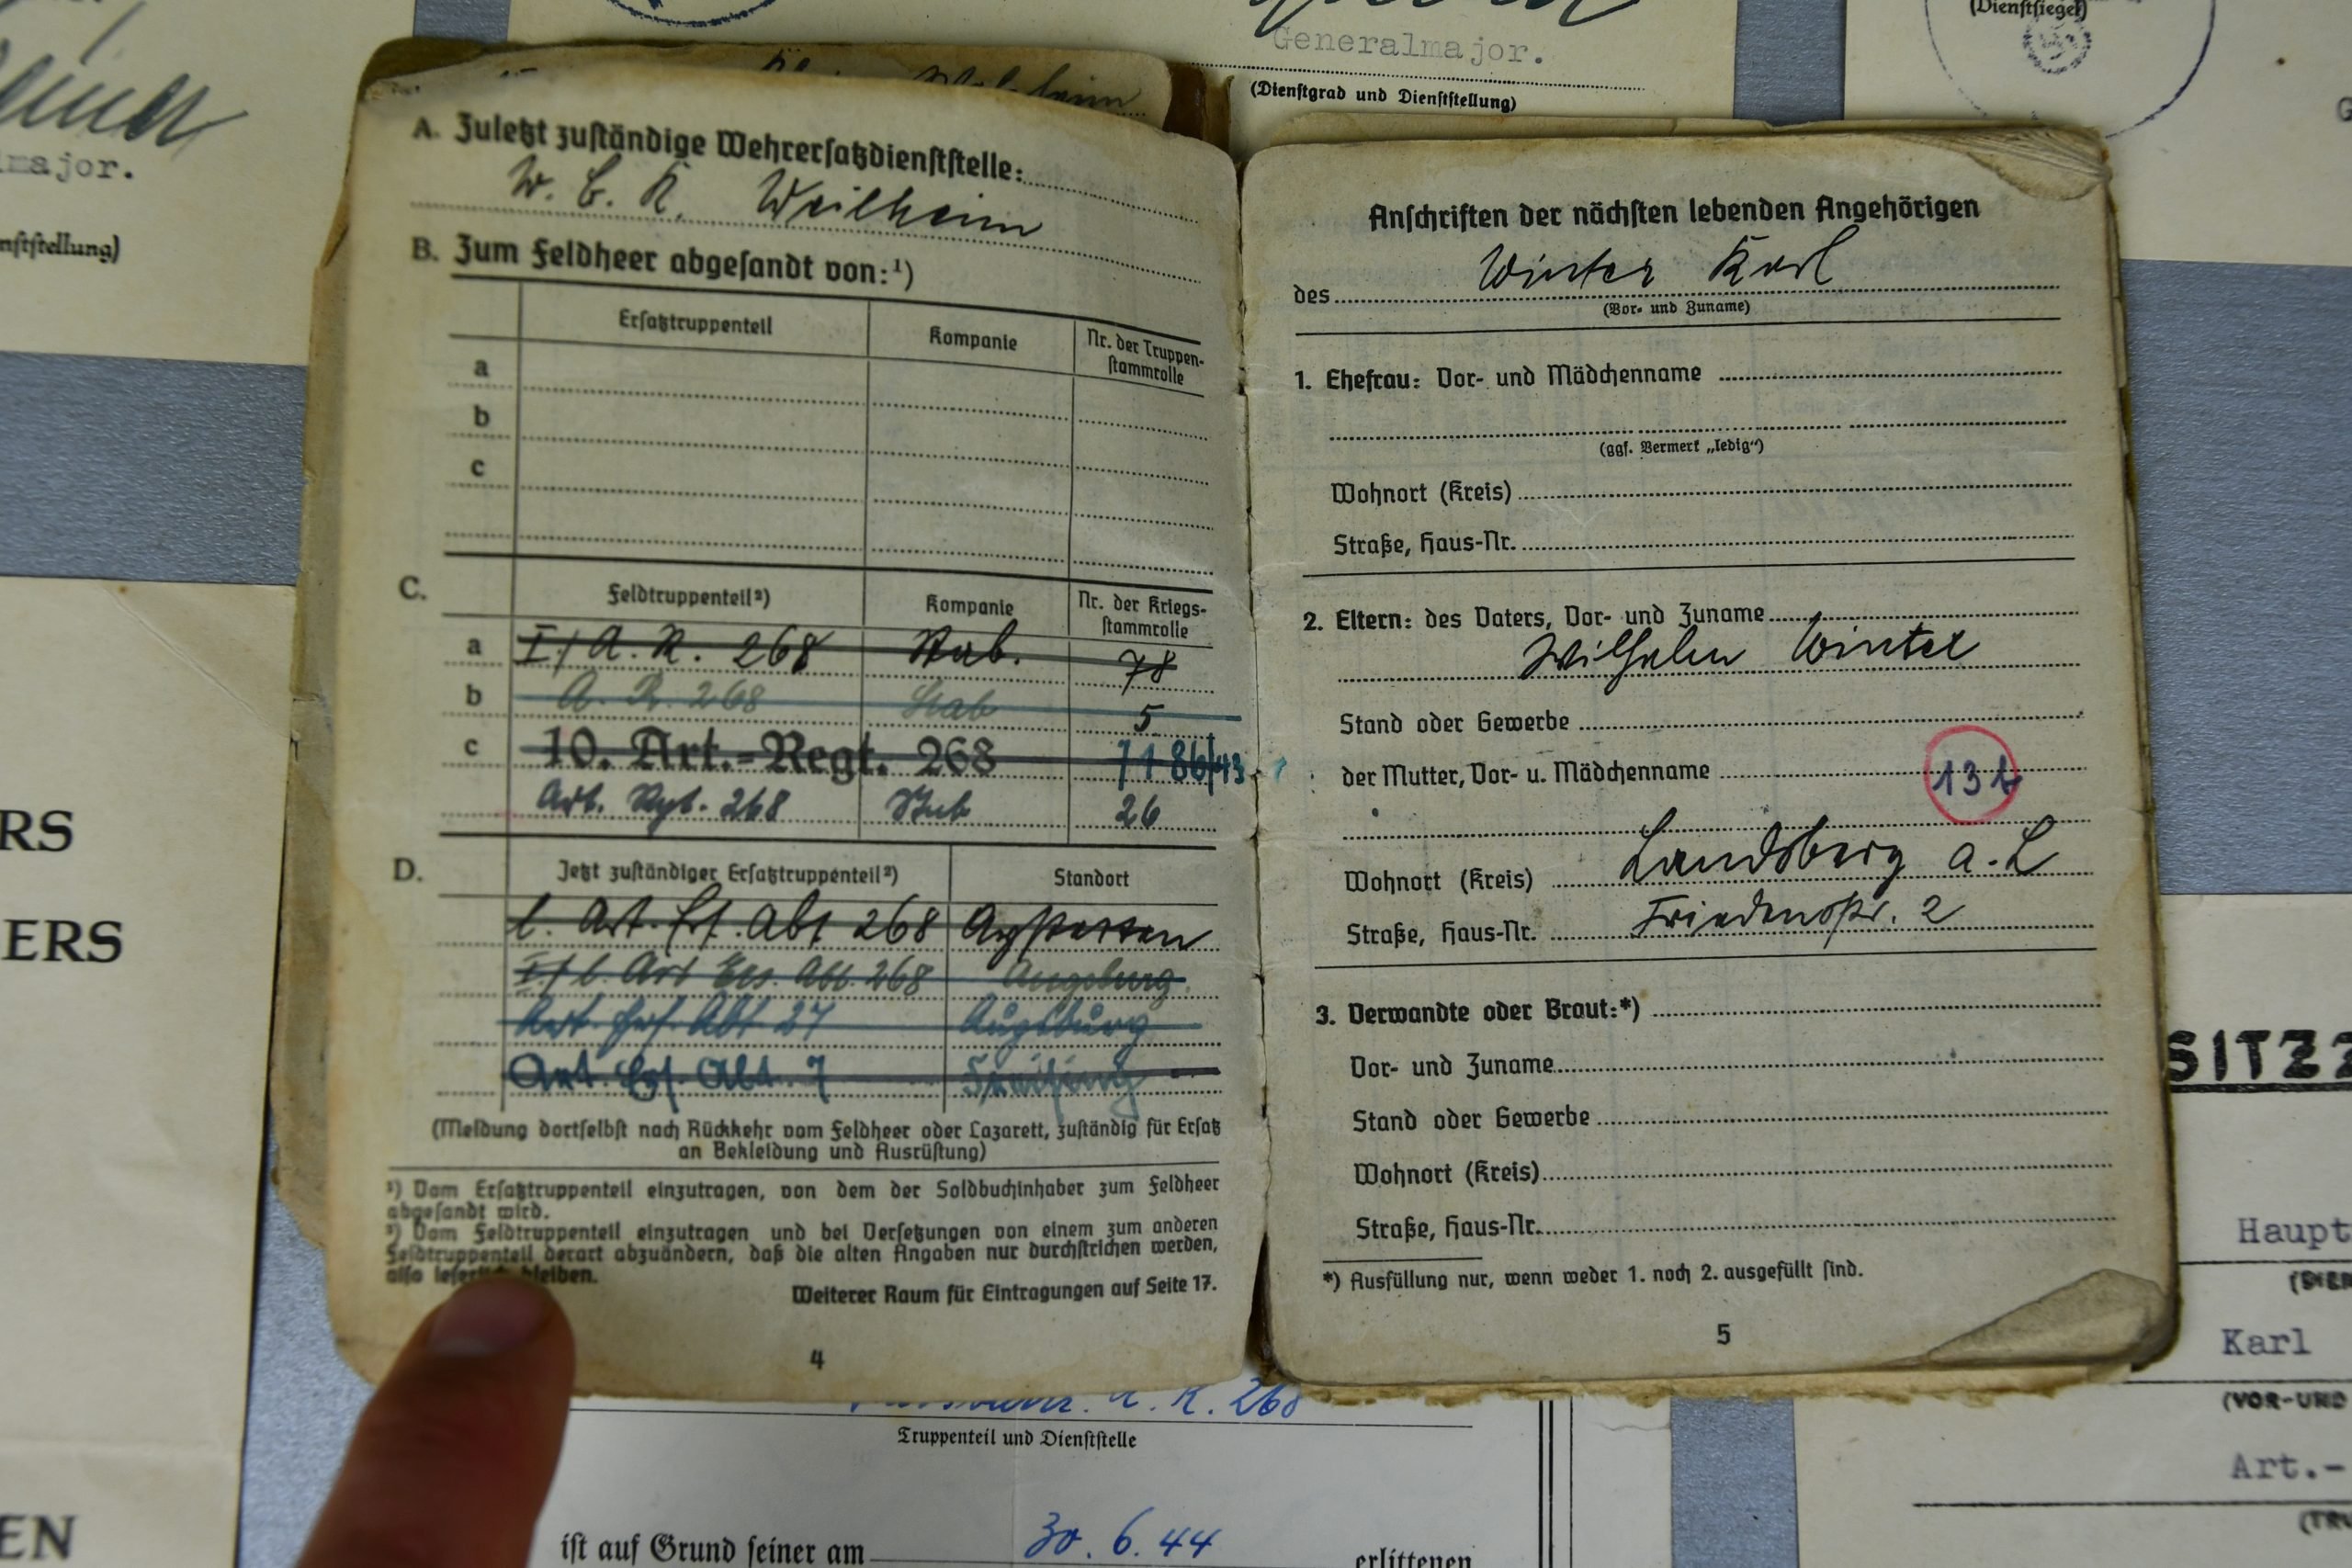 Generalmajor.
(Dienstgrad und Dienststellung)
(Dienstsiegel)
major.
nststellung)
A. Zuletzt zuständige Wehrersatzdienststelle:
W. B. K. Weilheim
B. Zum Feldheer abgesandt von:¹)
Ersatztruppenteil Kompanie Nr. der Truppen-
stammrolle
a
b
c
C. Feldtruppenteil²) Kompanie Nr. der Kriegs-
stammrolle
a I./A. R. 268 Stab. 78
b A. R. 268 Stab 5
c 10. Art.-Regt. 268 7186/43
Art. Rgt. 268 Stab 26
D. Jetzt zuständiger Ersatztruppenteil²) Standort
l. Art. Ers. Abt 268
I./l. Art Ers. Abt. 268 Augsburg.
Art. Ers. Abt 27 Augsburg
Art. Ers. Abt. 7 Freising
(Meldung dortselbst nach Rückkehr vom Feldheer oder Lazarett, zuständig für Ersatz
an Bekleidung und Ausrüstung)
¹) Vom Ersatztruppenteil einzutragen, von dem der Soldbuchinhaber zum Feldheer
abgesandt wird.
²) Vom Feldtruppenteil einzutragen und bei Versetzungen von einem zum anderen
Feldtruppenteil derart abzuändern, daß die alten Angaben nur durchstrichen werden,
also leserlich bleiben.
Weiterer Raum für Eintragungen auf Seite 17.
4
Anschriften der nächsten lebenden Angehörigen
des Winter Karl
(Vor- und Zuname)
1. Ehefrau: Vor- und Mädchenname
(ggf. Vermerk „ledig“)
Wohnort (Kreis)
Straße, Haus-Nr.
2. Eltern: des Vaters, Vor- und Zuname
Wilhelm Winter
Stand oder Gewerbe
der Mutter, Vor- u. Mädchenname
Wohnort (Kreis) Landsberg a. L
Straße, Haus-Nr. Friedensstr. 2
3. Verwandte oder Braut:*)
Vor- und Zuname
Stand oder Gewerbe
Wohnort (Kreis)
Straße, Haus-Nr.
*) Ausfüllung nur, wenn weder 1. noch 2. ausgefüllt sind.
5
RS
ERS
EN
SITZZ
Haupt
(DIEN
Karl
(VOR-UND
Art.-
(TRU
A. R. 268
Truppenteil und Dienststelle
ist auf Grund seiner am 30. 6. 44 erlittenen